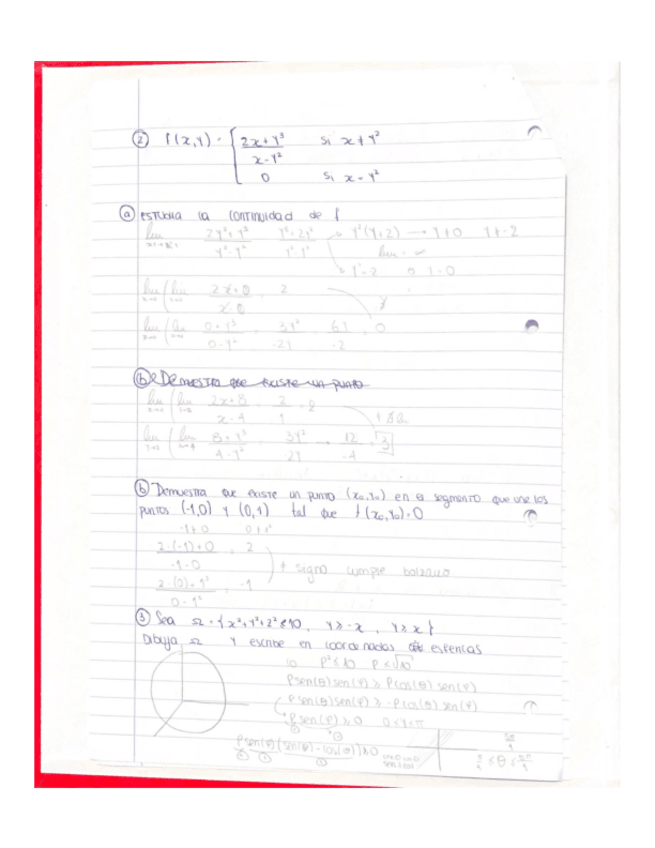 ② f(x,y) = { 2x+y³ / x-y² si x≠y²
0 si x=y²
ⓐ estudia la continuidad de f
lim 2y²+y³ / y²-y² y³+2y² / y²-y² → y²(y+2) → y≠0 y≠-2
lim = ∞
y=-2 o y=0
lim (lim 2x+0 / x-0 = 2
lim (lim 0+y³ / 0-y² = 3y² / -2y = 6y / -2 = 0
ⓑ Demuestra que existe un punto
lim (lim 2x+8 / x-4 = 2 / 1
lim (lim 8+y³ / 4-y² = 3y² / -2y = 12 / -4 = 3
ⓑ Demuestra que existe un punto (x₀,y₀) en el segmento que une los
puntos (-1,0) y (0,1) tal que f(x₀,y₀)=0
-1≠0 0≠1²
2·(-1)+0 / -1-0 = 2
≠ signo cumple bolzano
2·(0)+1³ / 0-1² = -1
③ Sea Ω={x²+y²+z²≤10, y≥-x, y≥x}
Dibuja Ω y escribe en coordenadas esfericas
ρ²≤10 ρ≤√10
ρsen(θ)sen(φ) ≥ ρcos(θ)sen(φ)
ρsen(θ)sen(φ) ≥ -ρcos(θ)sen(φ)
ρsen(φ)≥0 0≤φ≤π
ρsen(φ)(sen(θ)-cos(θ))≥0
π/4 ≤ θ ≤